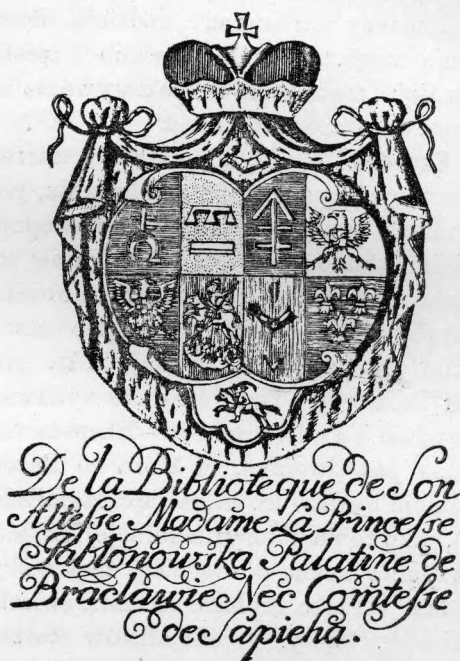 De la Biblioteque de Son
Altesse Madame La Princesse
Jabłonowska Palatine de
Braclawie Neé Comtesse
de Sapieha.